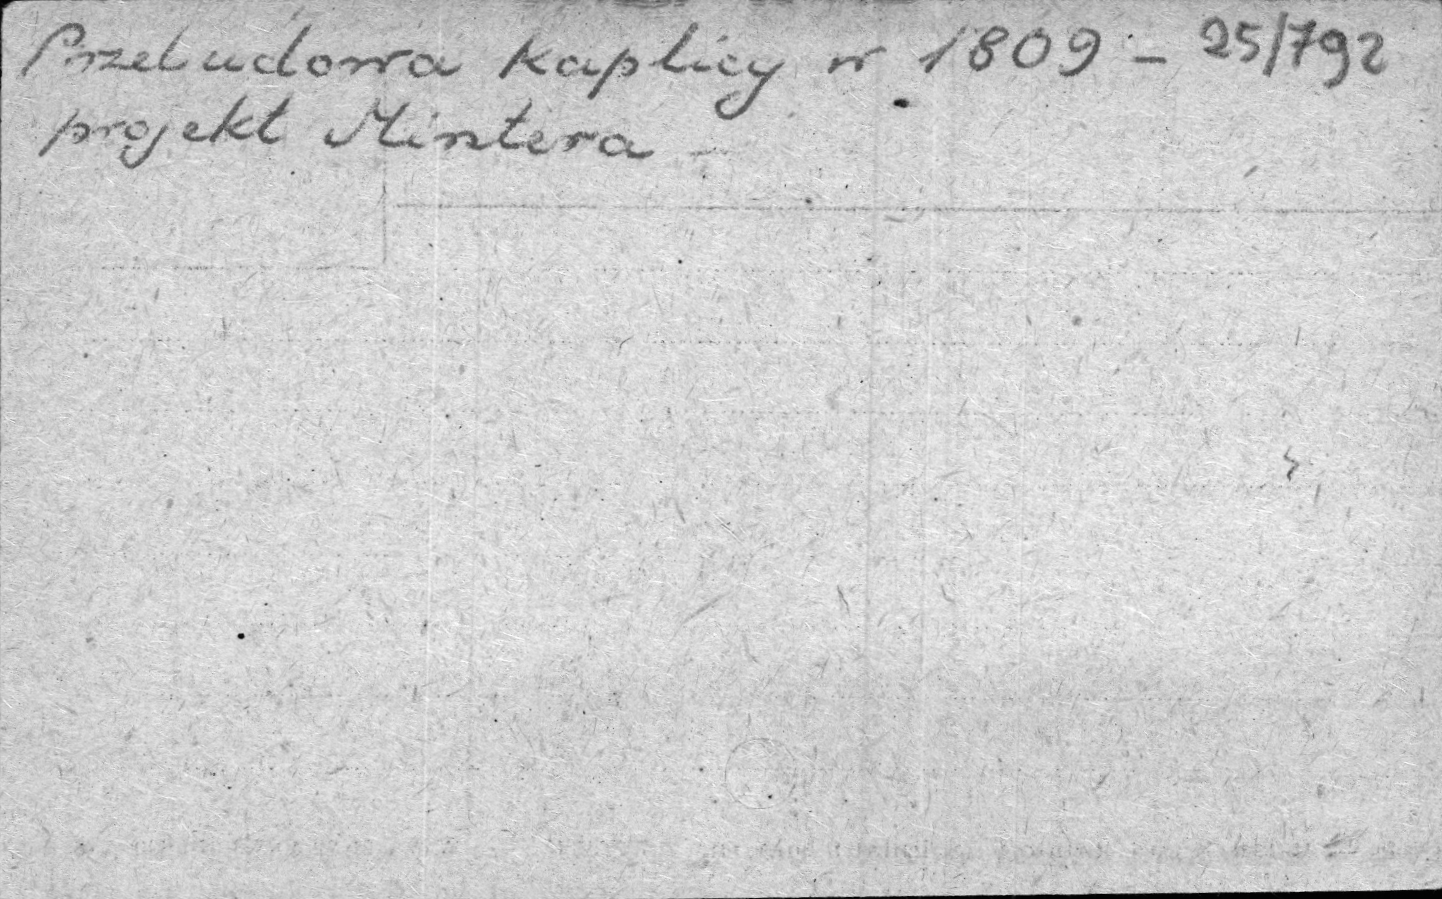 Przebudowa kaplicy w 1809 - 25/792
projekt Mintera